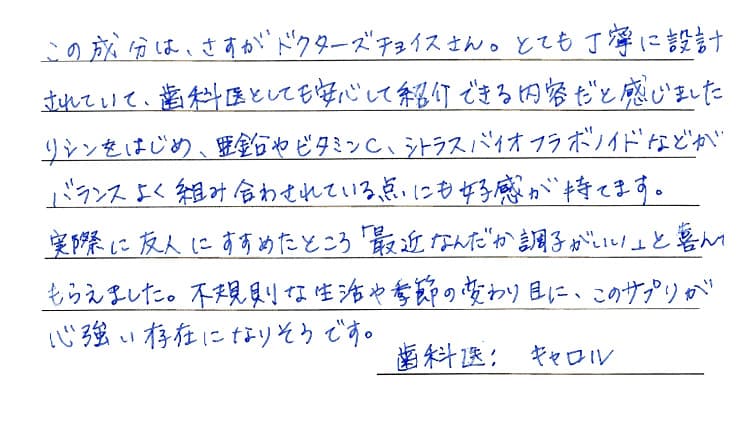 この成分は、さすがドクターズチョイスさん。とても丁寧に設計
されていて、歯科医としても安心して紹介できる内容だと感じました
リシンをはじめ、亜鉛やビタミンC、シトラスバイオフラボノイドなどが
バランスよく組み合わされている点にも好感が持てます。
実際に友人にすすめたところ「最近なんだか調子がいい」と喜んで
もらえました。不規則な生活や季節の変わり目に、このサプリが
心強い存在になりそうです。
歯科医: キャロル